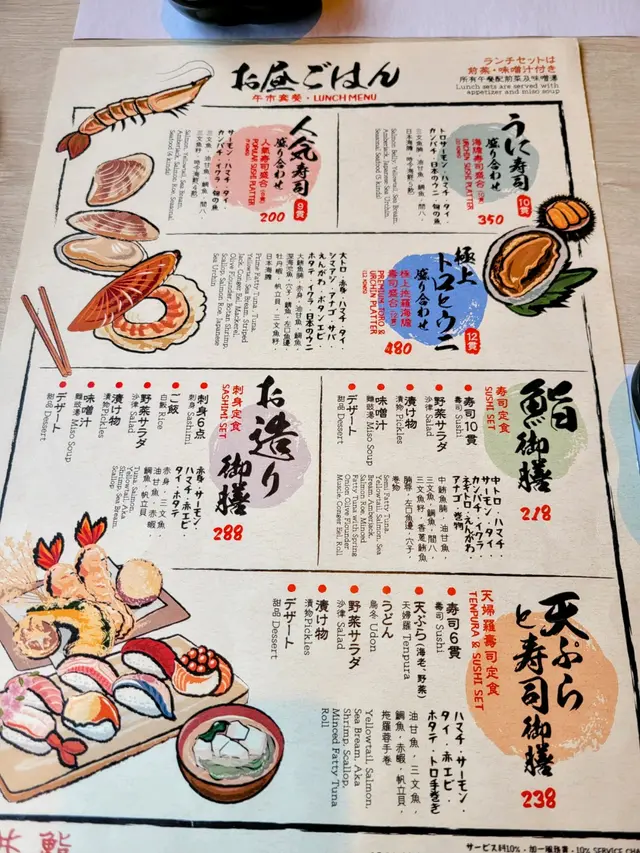 お昼ごはん
午市套餐・LUNCH MENU
ランチセットは
前菜・味噌汁付き
所有午餐配前菜及味噌湯
Lunch sets are served with
appetizer and miso soup
うに寿司
盛り合わせ
10貫
海膽壽司盛合
URCHIN SUSHI PLATTER
350
トロサーモン・ハマチ・タイ・
カンパチ・日本のウニ・旬の魚
Salmon belly, Yellowtail, Sea Bream,
Amberjack, Japanese Sea Urchin,
Seasonal Seafood
人気寿司
盛り合わせ
9貫
人氣壽司盛合
POPULAR SUSHI PLATTER
200
サーモン・ハマチ・タイ・
カンパチ・イクラ・旬の魚
三文魚・油甘魚・鯛魚・間八・
Salmon, Yellowtail, Sea Bream,
Amberjack, Salmon Roe, Seasonal
Seafood
極上
トロとウニ
盛り合わせ
12貫
極上拖羅海膽
壽司盛合
PREMIUM TORO &
URCHIN PLATTER
480
大トロ・赤身・ハマチ・タイ・
シマアジ・アナゴ・サバ・
えんがわ・ボタンエビ・
ホタテ・イクラ・日本のウニ
大鮪魚腩・赤身・油甘魚・鯛魚・
深海池魚・穴子・鯖魚・左口魚邊・
牡丹蝦・帆立貝・三文魚籽・
日本海膽
Prime Fatty Tuna, Tuna,
Yellowtail, Sea Bream, Striped
Jack, Conger Eel, Mackerel,
Olive Flounder, Botan Shrimp,
Scallop, Salmon Roe, Japanese
Sea Urchin
鮨御膳
壽司定食
SUSHI SET
218
寿司10貫
壽司 Sushi
野菜サラダ
沙律 Salad
漬け物
漬物 Pickles
味噌汁
麵豉湯 Miso Soup
デザート
甜品 Dessert
中トロ・ハマチ・
サーモン・タイ・
カンパチ・イクラ・
ネギトロ・えんがわ・
アナゴ・巻物
中鮪魚腩・油甘魚・
三文魚・鯛魚・間八・
三文魚籽・香蔥鮪魚
腩蓉・左口魚邊・穴子・
卷物
Semi Fatty Tuna,
Yellowtail, Salmon, Sea
Bream, Amberjack,
Salmon Roe, Minced
Fatty Tuna with Spring
Onion, Olive Flounder
Muscle, Conger Eel, Roll
お造り御膳
刺身定食
SASHIMI SET
288
刺身6点
刺身 Sashimi
ご飯
白飯 Rice
野菜サラダ
沙律 Salad
漬け物
漬物 Pickles
味噌汁
麵豉湯 Miso Soup
デザート
甜品 Dessert
赤身・サーモン・
ハマチ・赤エビ・
タイ・ホタテ
赤身・三文魚・
油甘魚・赤蝦・
鯛魚・帆立貝
Tuna, Salmon,
Yellowtail, Aka
Shrimp, Sea Bream,
Scallop
天ぷら
と寿司御膳
天婦羅壽司定食
TENPURA & SUSHI SET
238
寿司6貫
壽司 Sushi
天ぷら(海老、野菜)
天婦羅 Tenpura
うどん
烏冬 Udon
野菜サラダ
沙律 Salad
漬け物
漬物 Pickles
デザート
甜品 Dessert
ハマチ・サーモン・
タイ・赤エビ・
ホタテ・トロ手巻き
油甘魚・三文魚・
鯛魚・赤蝦・帆立貝・
拖羅蓉手卷
Yellowtail, Salmon,
Sea Bream, Aka
Shrimp, Scallop,
Minced Fatty Tuna
Roll
サービス料10%・加一服務費・10% SERVICE CHA